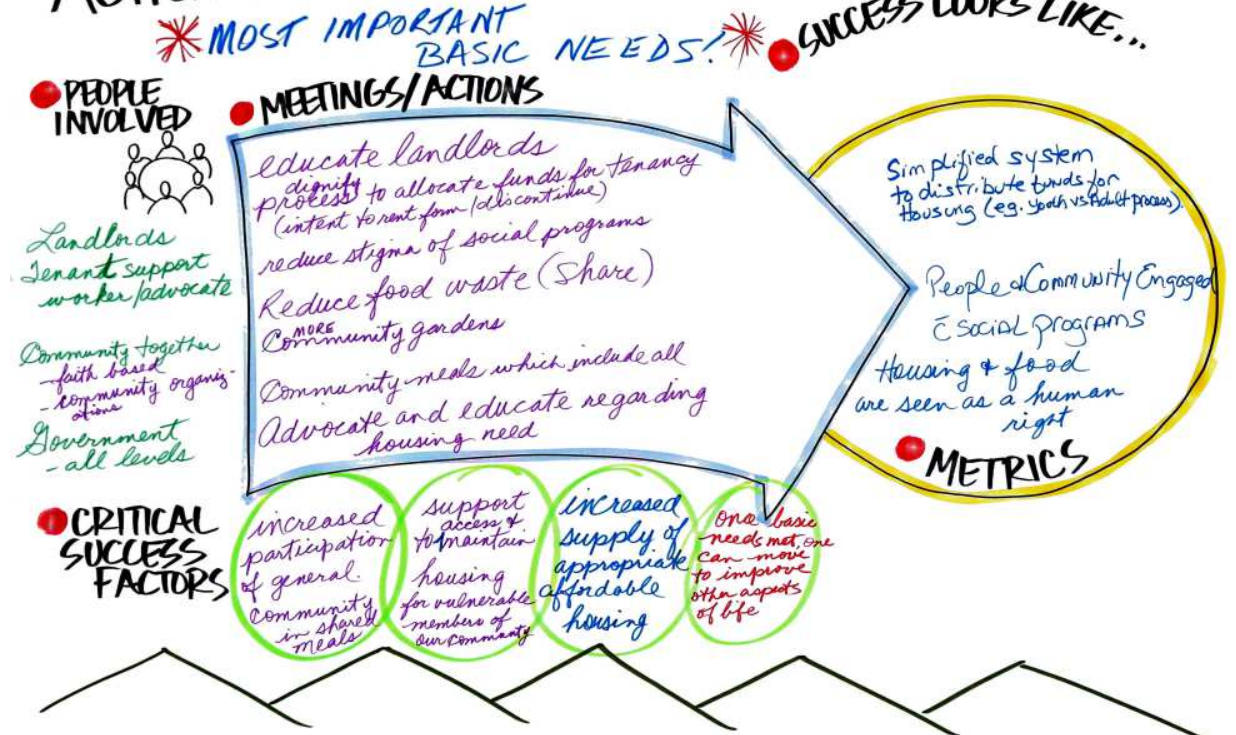 MOST IMPORTANT
BASIC NEEDS!
SUCCESS LOOKS LIKE...
PEOPLE
INVOLVED
Landlords
Tenant support
worker/advocate
Community together
- faith based
- community organiz-
ations
Government
- all levels
MEETINGS/ACTIONS
educate landlords
dignify
process to allocate funds for tenancy
(intent to rent form/discontinue)
reduce stigma of social programs
Reduce food waste (Share)
MORE
Community gardens
Community meals which include all
Advocate and educate regarding
housing need
Simplified system
to distribute funds for
Housing (eg. Youth vs Adult process)
People & Community Engaged
c̄ SOCIAL PROGRAMS
Housing & food
are seen as a human
right
METRICS
CRITICAL
SUCCESS
FACTORS
increased
participation
of general
community
in shared
meals
support
access &
to maintain
housing
for vulnerable
members of
our community
increased
supply of
appropriate
affordable
housing
Once basic
needs met, one
can move
to improve
other aspects
of life